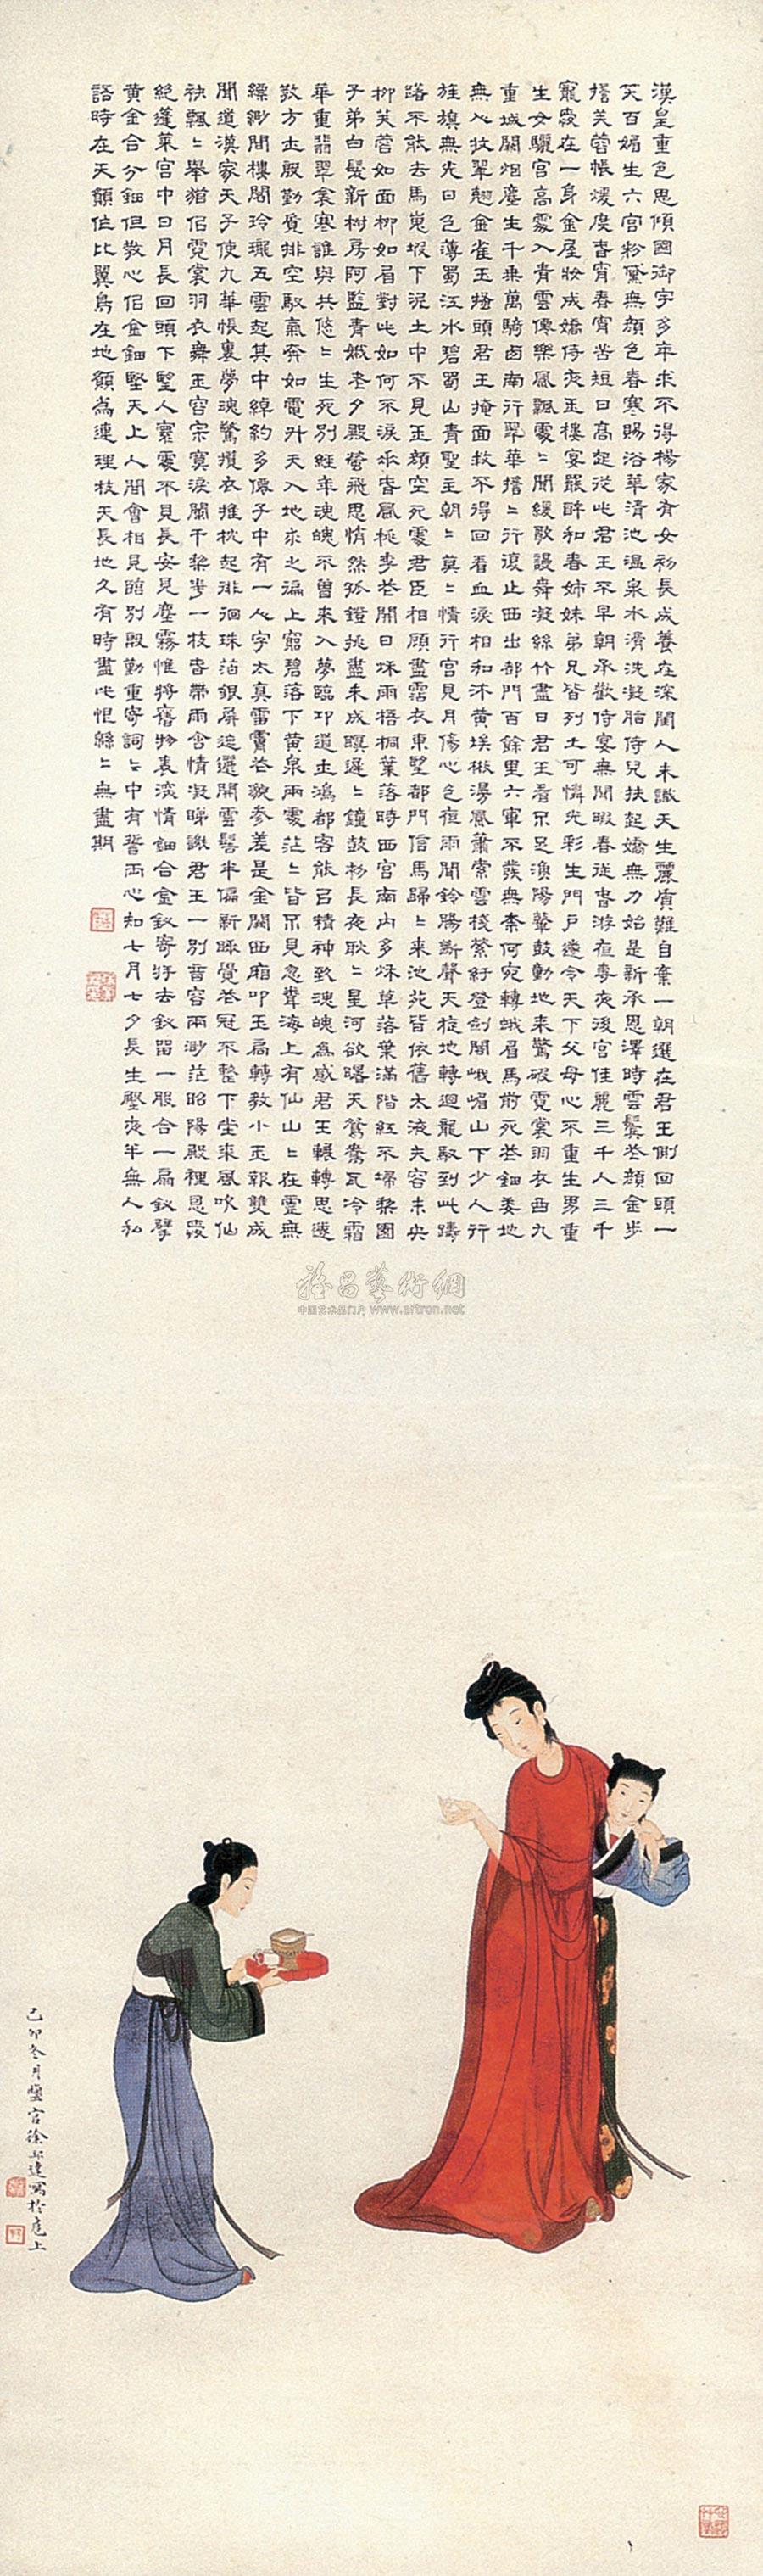 漢皇重色思傾國御宇多年求不得楊家有女初長成養在深閨人未識天生麗質難自棄一朝選在君王側回頭一
笑百媚生六宮粉黛無顏色春寒賜浴華清池溫泉水滑洗凝脂侍兒扶起嬌無力始是新承恩澤時雲鬢花顏金步
搖芙蓉帳煖度春宵春宵苦短日高起從此君王不早朝承歡侍宴無閒暇春從春游夜專夜後宮佳麗三千人三千
寵愛在一身金屋妝成嬌侍夜玉樓宴罷醉和春姊妹弟兄皆列土可憐光彩生門戶遂令天下父母心不重生男重
生女驪宮高處入青雲僊樂風飄處〻聞緩歌謾舞凝絲竹盡日君王看不足漁陽鼙鼓動地來驚破霓裳羽衣曲九
重城闕烟塵生千乘萬騎西南行翠華搖〻行復止西出都門百餘里六軍不發無奈何宛轉蛾眉馬前死花鈿委地
無人收翠翹金雀玉搔頭君王掩面救不得回看血淚相和流黃埃散漫風蕭索雲棧縈紆登劍閣峨嵋山下少人行
旌旗無光日色薄蜀江水碧蜀山青聖主朝〻莫〻情行宮見月傷心色夜雨聞鈴腸斷聲天旋地轉迴龍馭到此躊
躇不能去馬嵬坡下泥土中不見玉顏空死處君臣相顧盡霑衣東望都門信馬歸〻來池苑皆依舊太液芙容未央
柳芙蓉如面柳如眉對此如何不淚垂春風桃李花開日秋雨梧桐葉落時西宮南内多秋草落葉滿階紅不掃梨園
子弟白髮新椒房阿監青娥老夕殿螢飛思悄然孤鐙挑盡未成瞑遲〻鐘鼓初長夜耿〻星河欲曙天鴛鴦瓦冷霜
華重翡翠衾寒誰與共悠〻生死別經年魂魄不曾來入夢臨邛道士鴻都客能㠯精神致魂魄為感君王輾轉思遂
教方士殷勤覓排空馭氣奔如電升天入地求之徧上窮碧落下黃泉兩處茫〻皆不見忽聞海上有仙山〻在虛無
縹緲間樓閣玲瓏五雲起其中綽約多僊子中有一人字太真雪膚花貌參差是金闕西廂叩玉扃轉教小玉報雙成
聞道漢家天子使九華帳裏夢魂驚攬衣推枕起徘徊珠箔銀屏迤邐開雲髻半偏新睡覺花冠不整下堂來風吹仙
袂飄〻舉猶佀霓裳羽衣舞玉容寂寞淚闌干梨花一枝春帶雨含情凝睇謝君王一別音容兩渺茫昭陽殿裡恩愛
絕蓬萊宮中日月長回頭下望人寰處不見長安見塵霧惟將舊物表深情鈿合金釵寄將去釵留一股合一扇釵擘
黃金合分鈿但教心佀金鈿堅天上人間會相見臨別殷勤重寄詞〻中有誓兩心知七月七夕長生殿夜半無人私
語時在天願作比翼鳥在地願為連理枝天長地久有時盡此恨綿〻無盡期
雅昌藝術網
中国艺术品门户 www.artron.net
己卯冬月鹽官徐邦達寫於扈上